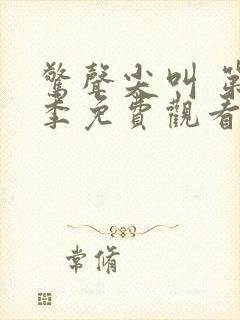 驚聲尖叫 第
季免費觀看
常脩